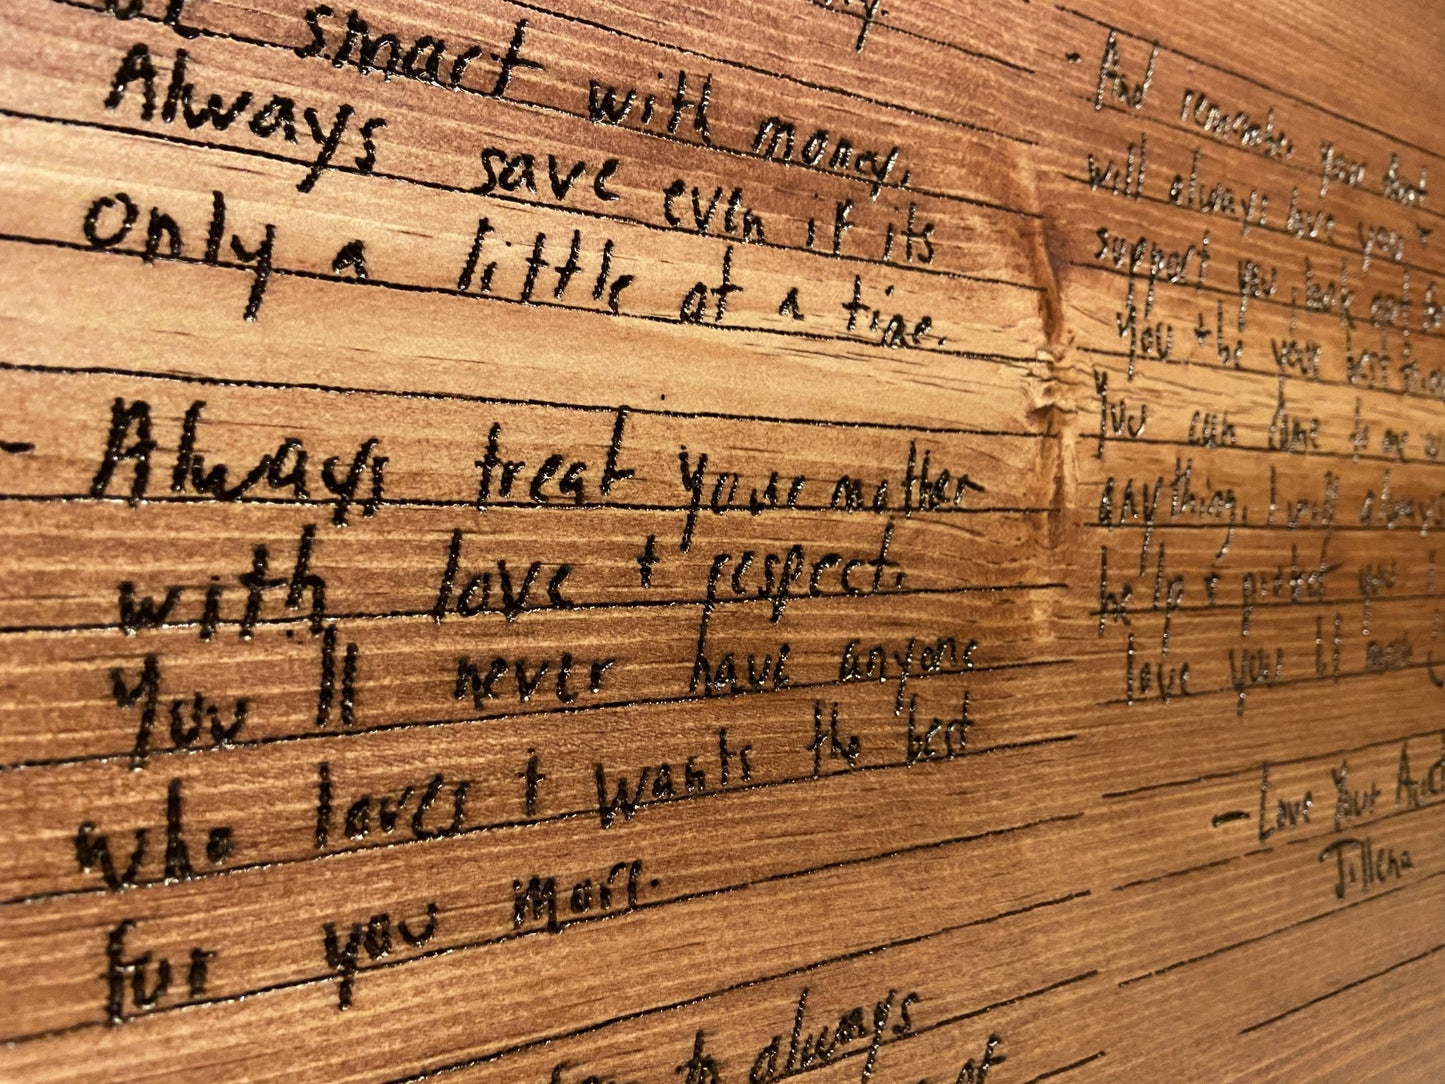 be smart with money.
Always save even if its
only a little at a time.
- Always treat your mother
with love + respect.
You'll never have anyone
who loves + wants the best
for you more.
to always
at
- And remember your Aunt
will always love you +
support you, look out for
you + be your best
You can come to me
anything, I will always
help + protect you
love you lil man
- Love Your Aunt
Jillena